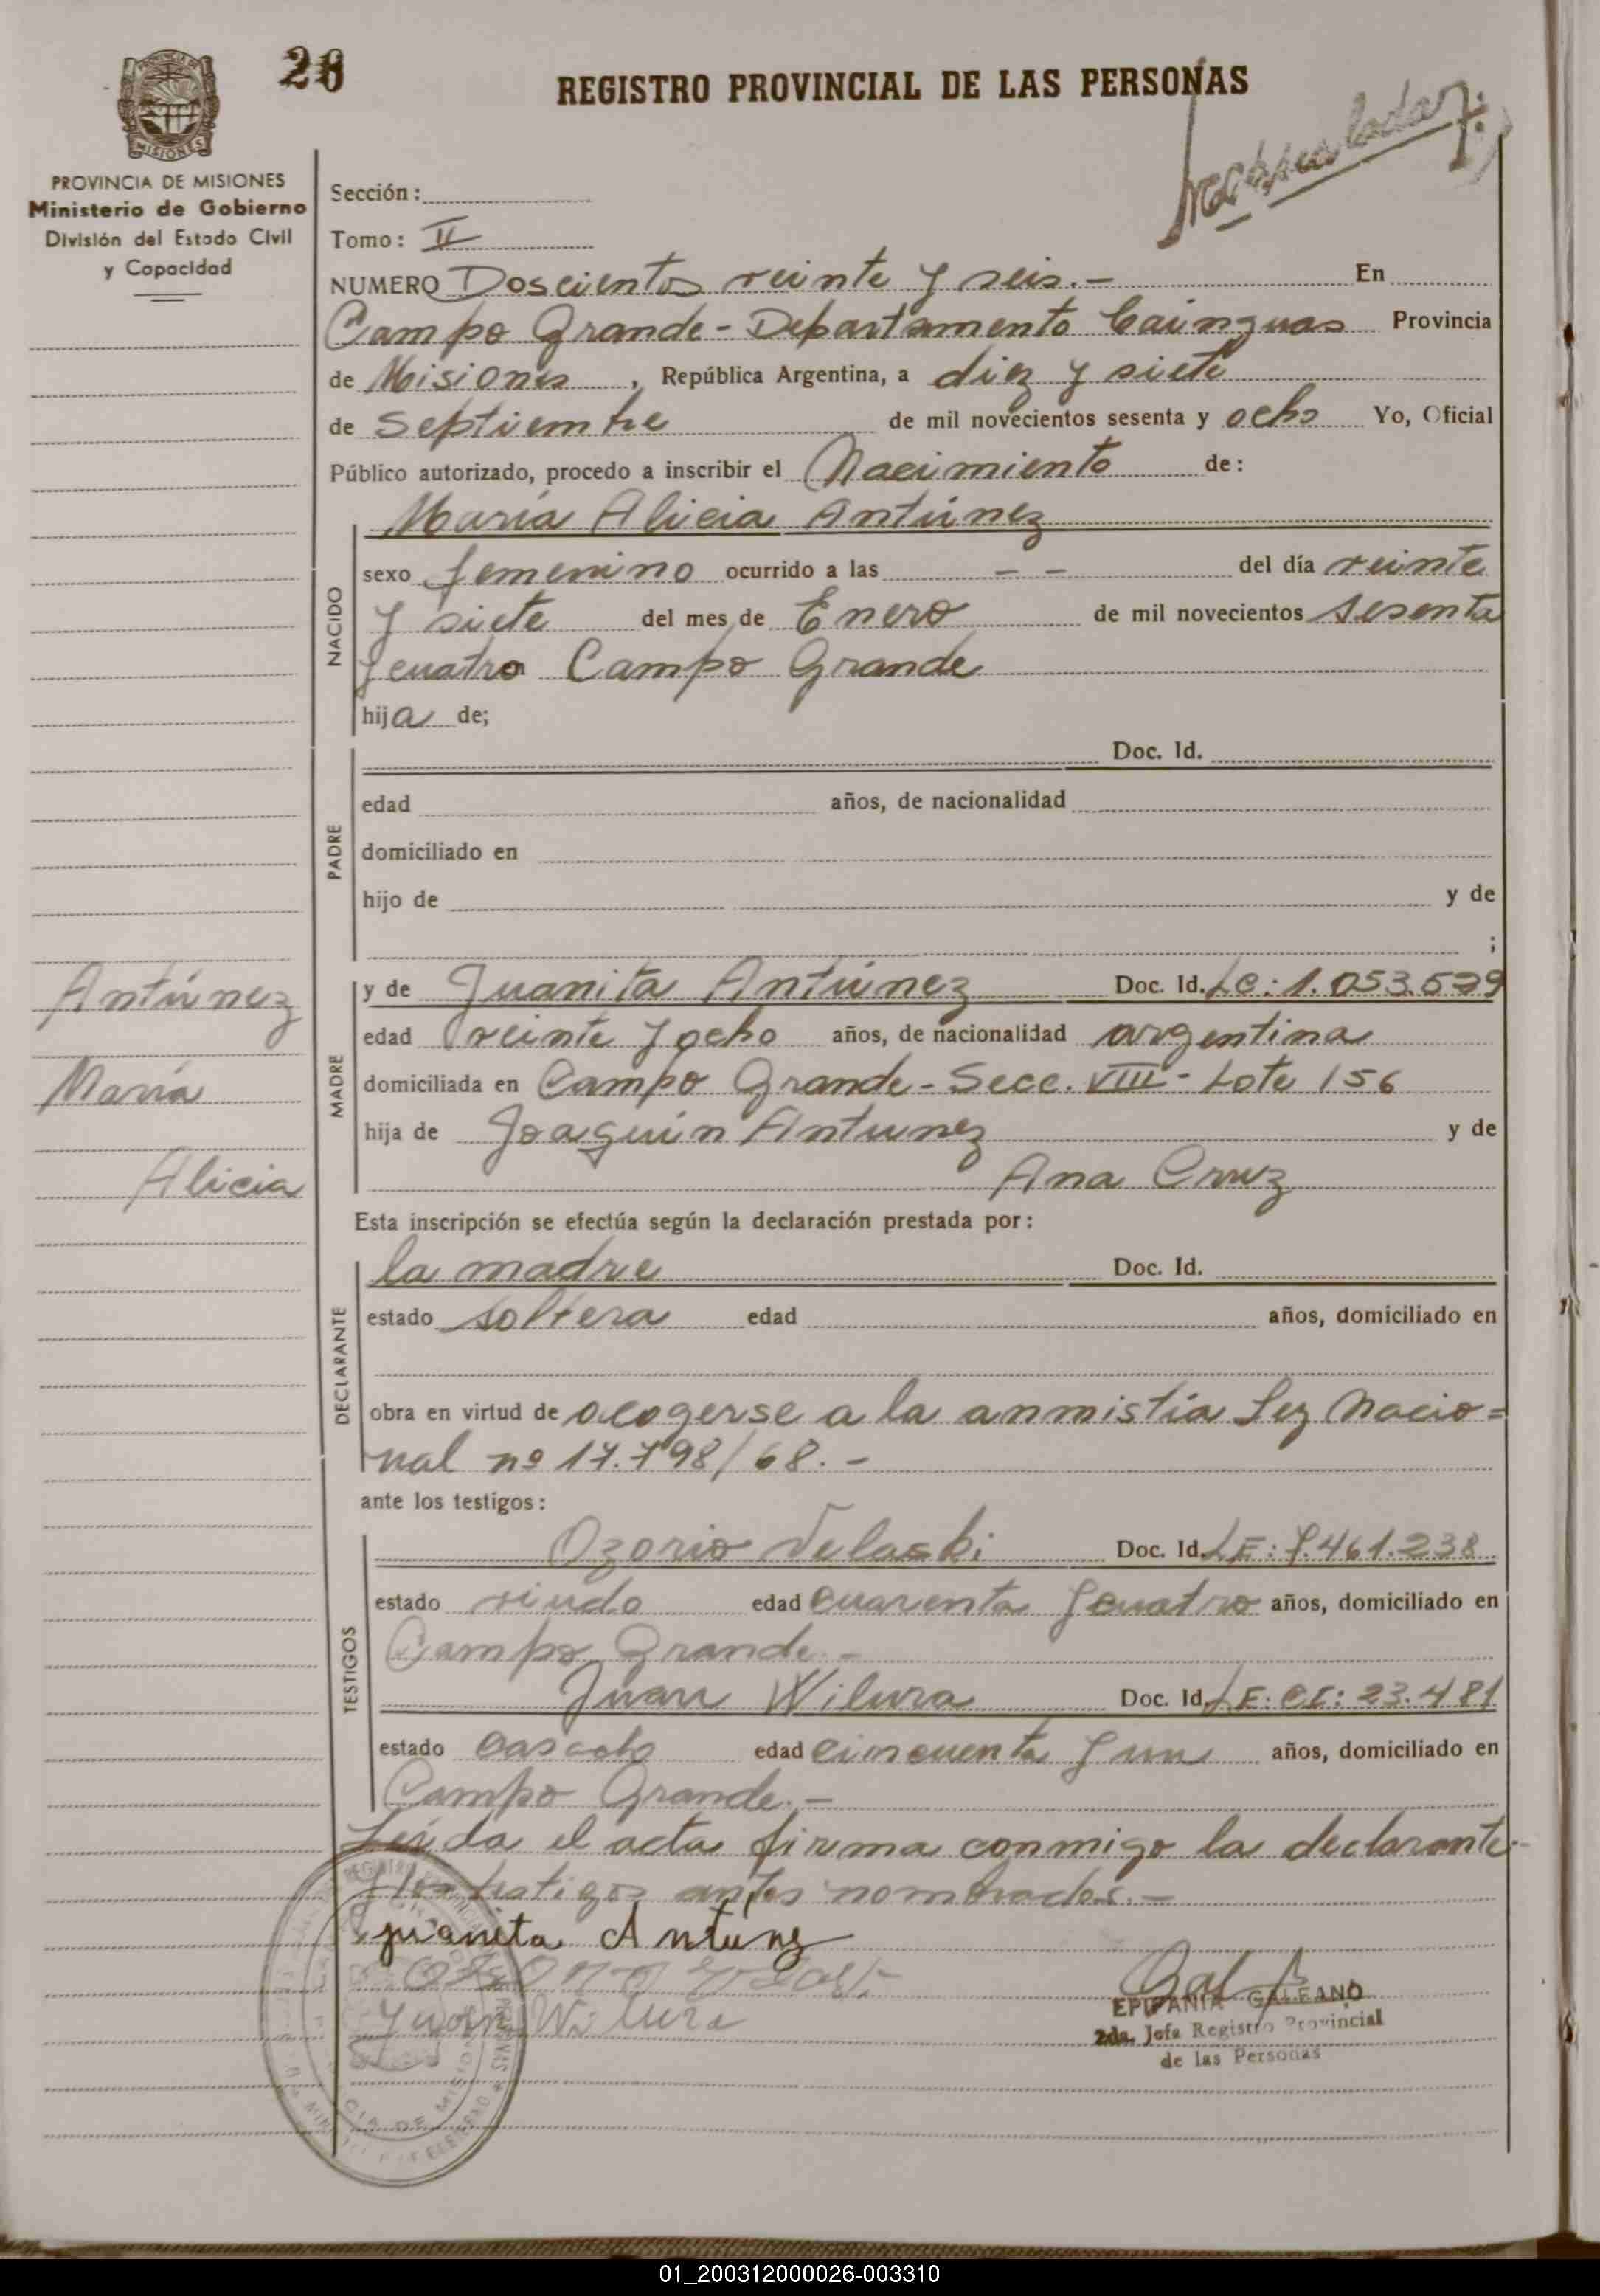 26
REGISTRO PROVINCIAL DE LAS PERSONAS
MISIONES
PROVINCIA DE MISIONES
Ministerio de Gobierno
División del Estado Civil
y Capacidad
Sección:
Tomo: II
NUMERO Doscientos veinte y seis.- En
Campo Grande - Departamento Cainguas Provincia
de Misiones, República Argentina, a diez y siete
de Septiembre de mil novecientos sesenta y ocho Yo, Oficial
Público autorizado, procedo a inscribir el Nacimiento de:
María Alicia Antúnez
NACIDO
sexo femenino ocurrido a las - - del día veinte
y siete del mes de Enero de mil novecientos sesenta
y cuatro Campo Grande
hija de;
PADRE
Doc. Id.
edad años, de nacionalidad
domiciliado en
hijo de y de
;
Antúnez
María
Alicia
MADRE
y de Juanita Antúnez Doc. Id. LC: 1.053.539
edad veinte y ocho años, de nacionalidad argentina
domiciliada en Campo Grande - Secc. VIII - Lote 156
hija de Joaquín Antunez y de
Ana Cruz
Esta inscripción se efectúa según la declaración prestada por:
DECLARANTE
la madre Doc. Id.
estado soltera edad años, domiciliado en
obra en virtud de acogerse a la anmistía Ley Nacio=
nal nº 17.798/68.-
ante los testigos:
TESTIGOS
Ozorio Velaski Doc. Id. LE: 7.461.238
estado viudo edad cuarenta y cuatro años, domiciliado en
Campo Grande.-
Juan Wilura Doc. Id. LE: CI: 23.481
estado casado edad cincuenta y un años, domiciliado en
Campo Grande.-
Leída el acta firma conmigo la declarante
y los testigos antes nombrados.-
juanita Antunez
Juan Wilura
EPIFANIA GALEANO
2da. Jefa Registro Provincial
de las Personas
01_200312000026-003310